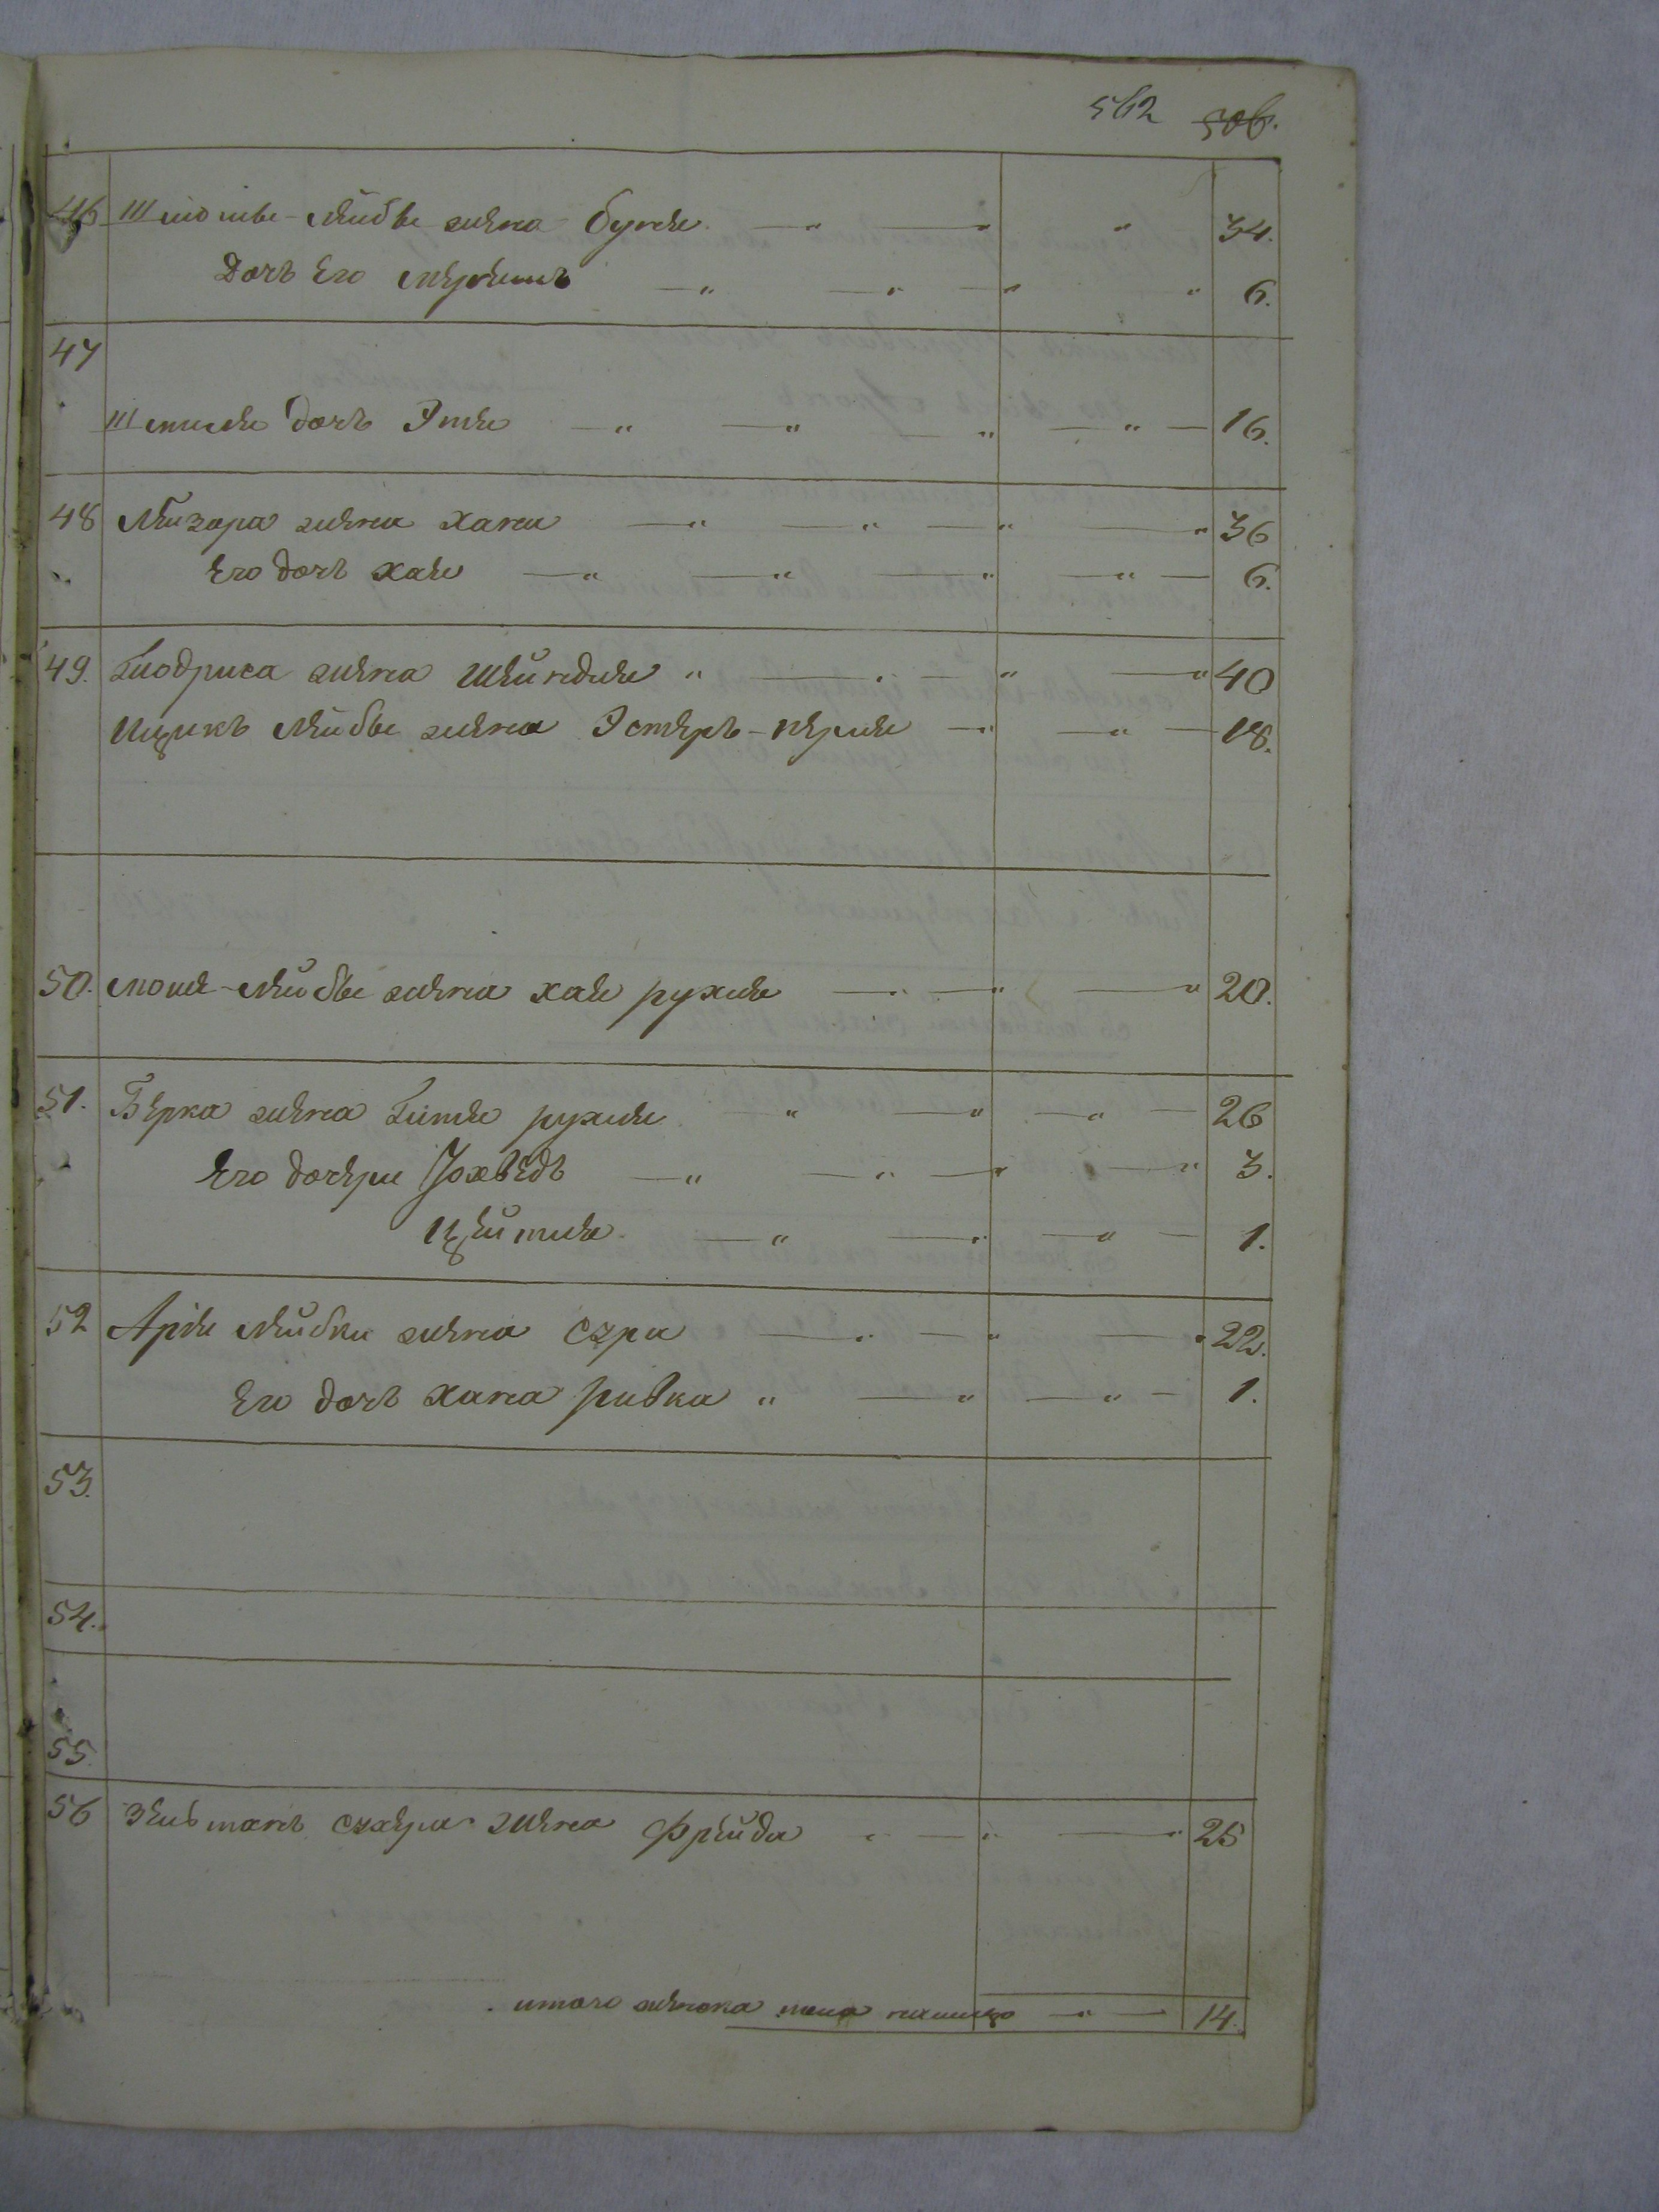 562 506.
46 Шмоте-Лейбе жена Буне 34.
Дочь Его Мерьемъ 6.
47
Шмуле дочь Этке 16.
48 Лейзора жена Хана 36
Его дочь Хае 6.
49. жена Шейндле 40
Ицикъ Лейбе жена Эстеръ-Перле 18.
50. Моше-Лейбе жена Хае рухле 20.
51. Берка жена Гитле рухле 26
Его дочери Иохведъ 3.
Цейтле 1.
52 Аріе Лейбки жена Сора 22.
Его дочь Хана Ривка 1.
53.
54.
55.
56 жена Фрейда 25
итого женска пола налицо 14.